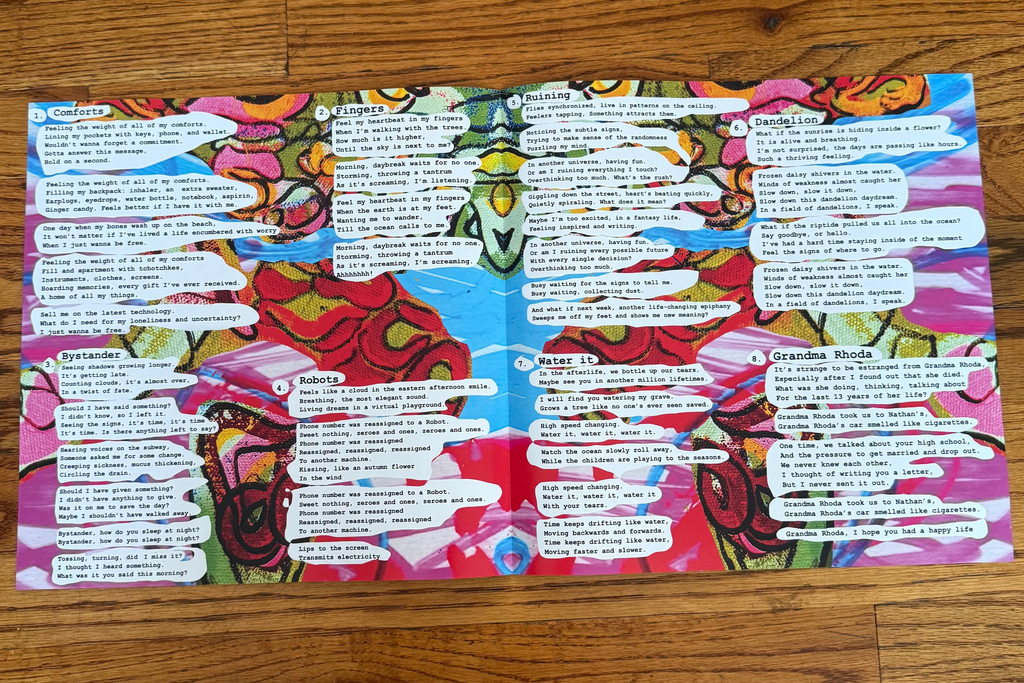 1. Comforts
Feeling the weight of all of my comforts.
Lining my pockets with keys, phone, and wallet.
Wouldn't wanna forget a commitment.
Gotta answer this message,
Hold on a second.
Feeling the weight of all of my comforts.
Filling my backpack: inhaler, an extra sweater,
Earplugs, eyedrops, water bottle, notebook, aspirin,
Ginger candy. Feels better if I have it with me.
One day when my bones wash up on the beach,
It won't matter if I've lived a life encumbered with worry
When I just wanna be free.
Feeling the weight of all of my comforts
Fill and apartment with tchotchkes,
Instruments, clothes, screens.
Hoarding memories, every gift I've ever received.
A home of all my things.
Sell me on the latest technology.
What do I need for my loneliness and uncertainty?
I just wanna be free.
2. Fingers
Feel my heartbeat in my fingers
When I'm walking with the trees.
How much is it higher,
Until the sky is next to me?
Morning, daybreak waits for no one,
Storming, throwing a tantrum
As it's screaming, I'm listening.
Feel my heartbeat in my fingers
When the earth is at my feet.
Wanting me to wander,
Till the ocean calls to me.
Morning, daybreak waits for no one,
Storming, throwing a tantrum
As it's screaming, I'm screaming.
Ahhhhhhh!
3. Bystander
Seeing shadows growing longer,
It's getting late.
Counting clouds, it's almost over,
In a twist of fate.
Should I have said something?
I didn't know, so I left it.
Seeing the signs, it's time, it's time
It's time. Is there anything left to say?
Hearing voices on the subway.
Someone asked me for some change.
Creeping sickness, mucus thickening,
Circling the drain.
Should I have given something?
I didn't have anything to give.
Was it on me to save the day?
Maybe I shouldn't have walked away.
Bystander, how do you sleep at night?
Bystander, how do you sleep at night?
Tossing, turning, did I miss it?
I thought I heard something.
What was it you said this morning?
4. Robots
Feels like a cloud in the eastern afternoon smile.
Breathing, the most elegant sound.
Living dreams in a virtual playground.
Phone number was reassigned to a Robot.
Sweet nothing, zeroes and ones, zeroes and ones.
Phone number was reassigned
Reassigned, reassigned, reassigned
To another machine.
Kissing, like an autumn flower
In the wind
Phone number was reassigned to a Robot.
Sweet nothing, zeroes and ones, zeroes and ones.
Phone number was reassigned
Reassigned, reassigned, reassigned
To another machine.
Lips to the screen
Transmits electricity
5. Ruining
Flies synchronized, live in patterns on the ceiling.
Feelers tapping, Something attracts them.
Noticing the subtle signs,
Trying to make sense of the randomness
Puzzling my mind
In another universe, having fun.
Or am I ruining everything I touch?
Overthinking too much. What's the rush?
Giggling down the street, heart's beating quickly,
Quietly spiraling. What does it mean?
Maybe I'm too excited, in a fantasy life,
Feeling inspired and writing.
In another universe, having fun,
Or am I ruining every possible future
With every single decision?
Overthinking too much.
Busy waiting for the signs to tell me.
Busy waiting, collecting dust.
And what if next week, another life-changing epiphany
Sweeps me off my feet and shows me new meaning?
6. Dandelion
What if the sunrise is hiding inside a flower?
It is alive and breathing.
I'm not surprised, the days are passing like hours,
Such a thriving feeling.
Frozen daisy shivers in the water.
Winds of weakness almost caught her
Slow down, slow it down,
Slow down this dandelion daydream.
In a field of dandelions, I speak.
What if the riptide pulled us all into the ocean?
Say goodbye, or hello.
I've had a hard time staying inside of the moment
Feel the signs of where to go.
Frozen daisy shivers in the water.
Winds of weakness almost caught her
Slow down, slow it down,
Slow down this dandelion daydream.
In a field of dandelions, I speak.
7. Water it
In the afterlife, we bottle up our tears.
Maybe see you in another million lifetimes.
I will find you watering my grave.
Grows a tree like no one's ever seen saved.
High speed changing.
Water it, water it, water it.
Watch the ocean slowly roll away,
While the children are playing to the seasons.
High speed changing.
Water it, water it, water it
With your tears.
Time keeps drifting like water,
Moving backwards and forwards.
Time keeps drifting like water,
Moving faster and slower.
8. Grandma Rhoda
It's strange to be estranged from Grandma Rhoda,
Especially after I found out that she died.
What was she doing, thinking, talking about
For the last 13 years of her life?
Grandma Rhoda took us to Nathan's,
Grandma Rhoda's car smelled like cigarettes.
One time, we talked about your high school,
And the pressure to get married and drop out.
We never knew each other,
I thought of writing you a letter,
But I never sent it out.
Grandma Rhoda took us to Nathan's,
Grandma Rhoda's car smelled like cigarettes.
Grandma Rhoda, I hope you had a happy life